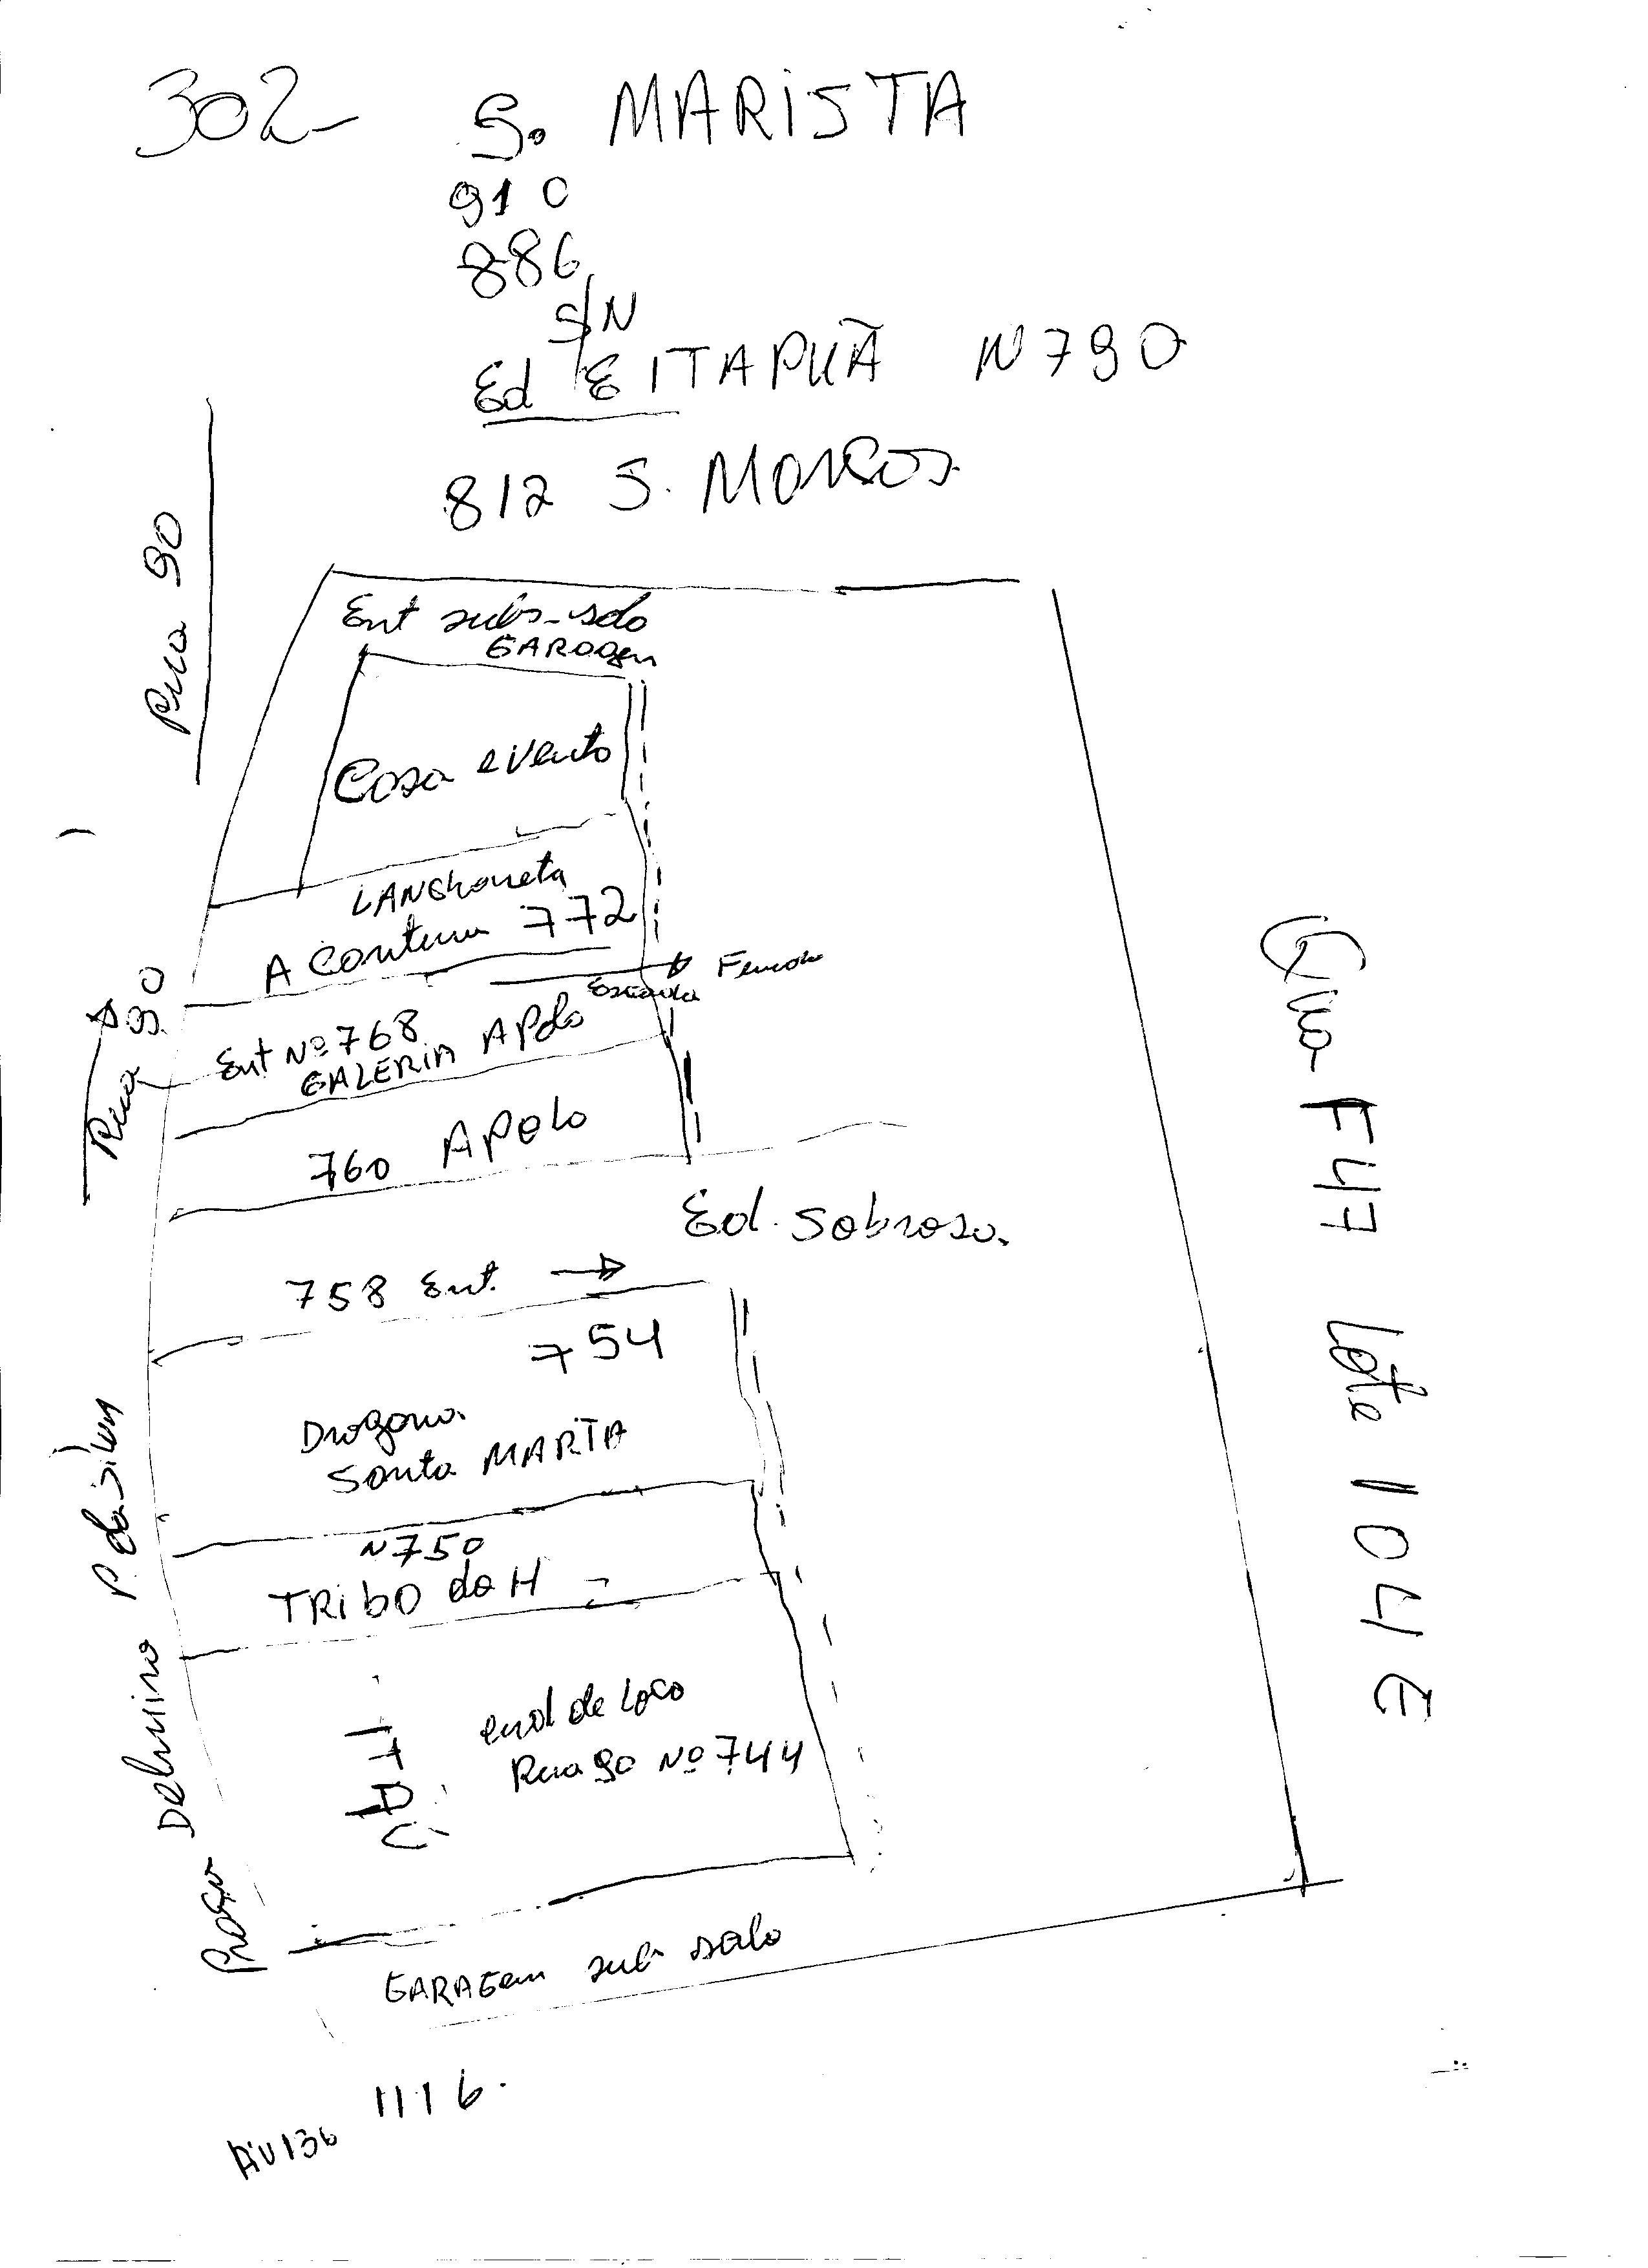 302- S. MARISTA
910
886
S/N
Ed EITAPUÃ N790
812 S. MARCOS
Rua 90
Ent subs-solo
GARAGem
Casa evento
LANShoneta
A 772
Fundo
Escada
Rua 90
Ent Nº 768
GALERIA APOLO
760 APOLO
Ed. Sobroso.
758 Ent.
754
Drogaria
Santa MARTA
N750
TRibO do H
ITAÚ
end de Loco
Rua 90 Nº 744
GARAGem sub solo
Praça Delmiro P. da Silva
Qua F47 Lote 104 E
1116.
AV 136